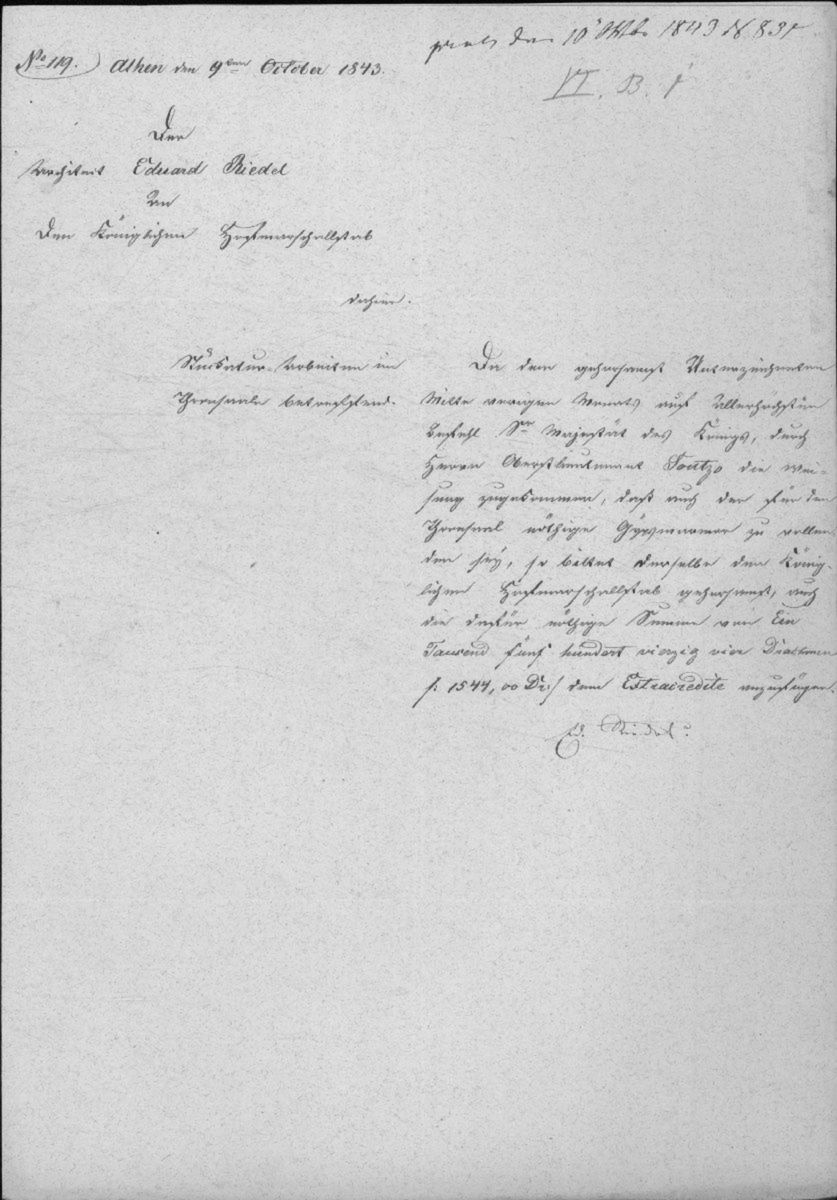 No 119. Athen den 9ten October 1843.
praes. den 10 Oktbr 1843 N 831
VI. B. f
Der
Architect Eduard Riedel
An
Den Königlichen Hofmarschallstab
dahier.
Stuckatur-Arbeiten im
Thronsaale betreffend.
Da dem gehorsamst Unterzeichneten
Mitte vorigen Monats auf Allerhöchsten
Befehl Sr Majestät des Königs, durch
Herrn Oberstlieutenant Soutzo die Wei-
sung zugekommen, daß auch der für den
Thronsaal nöthige Gypsmarmor zu vollen-
den sey, so bittet derselbe den König-
lichen Hofmarschallstab gehorsamst, auch
die dafür nöthige Summe von Ein
Tausend fünf hundert vierzig vier Drachmen
/: 1544,00 Dr:/ dem Extracredite anzufügen.
Ed. Riedel